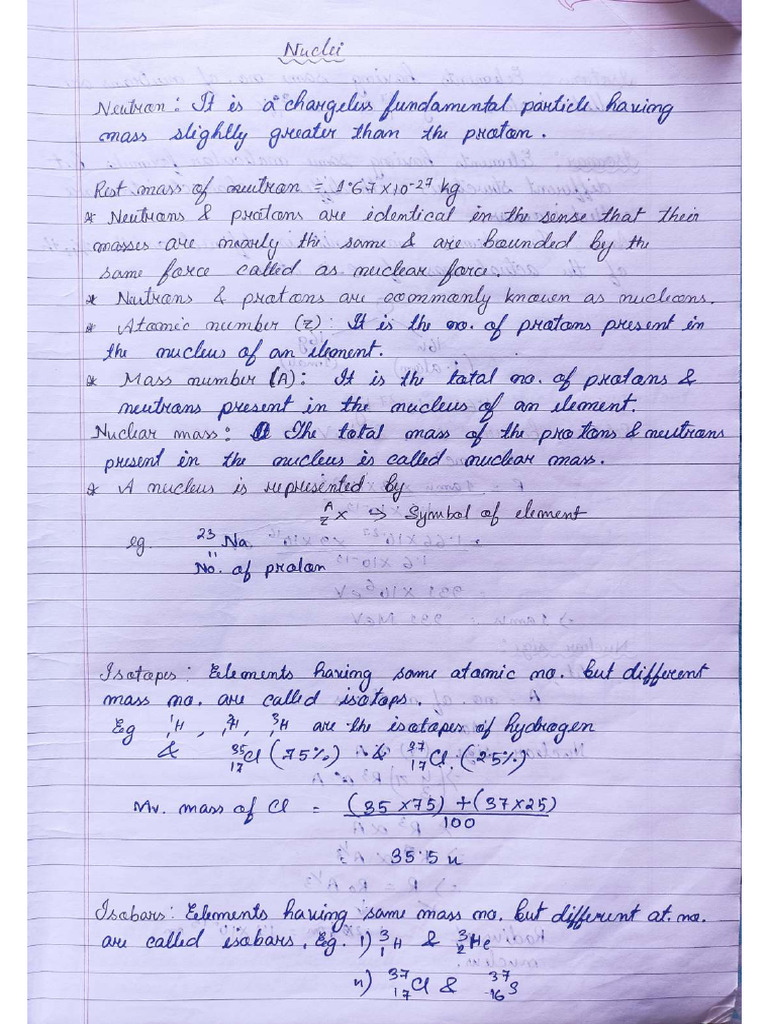 Nuclei
Neutron: It is a chargeless fundamental particle having
mass slightly greater than the proton.
Rest mass of neutron = 1.67×10⁻²⁷ kg
* Neutrons & protons are identical in the sense that their
masses are nearly the same & are bounded by the
same force called as nuclear force.
* Neutrons & protons are commonly known as nucleons.
* Atomic number (z): It is the no. of protons present in
the nucleus of an element.
* Mass number (A): It is the total no. of protons &
neutrons present in the nucleus of an element.
Nuclear mass: The total mass of the protons & neutrons
present in the nucleus is called nuclear mass.
* A nucleus is represented by
ᴬ_z X → Symbol of element
eg. ²³₁₁Na
No. of proton
Isotopes: Elements having same atomic no. but different
mass no. are called isotops.
Eg ¹₁H, ²₁H, ³₁H are the isotopes of hydrogen
& ³⁵₁₇Cl (75%) & ³⁷₁₇Cl (25%)
Av. mass of Cl = (35 × 75) + (37 × 25)
100
35.5 u
Isobars: Elements having same mass no. but different at. no.
are called isobars, Eg. i) ³₁H & ³₂He
ii) ³⁷₁₇Cl & ³⁷₁₆S